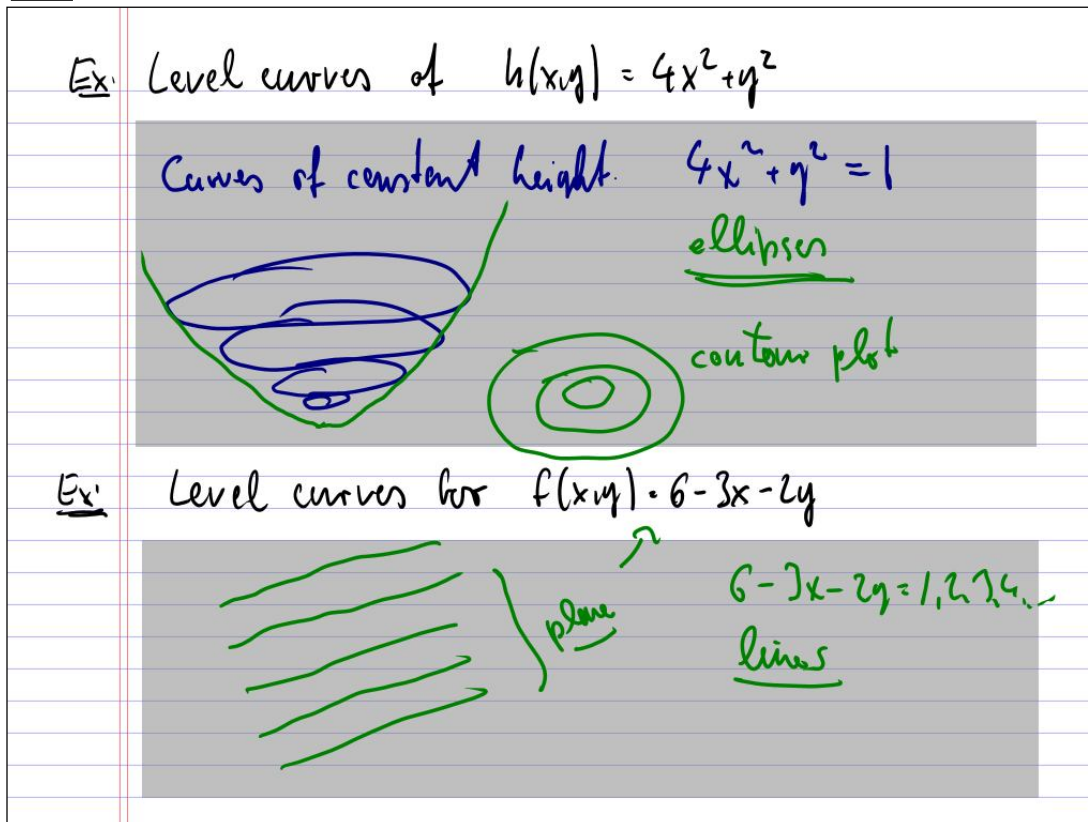 Ex: Level curves of h(x,y) = 4x²+y²
Curves of constant height. 4x²+y² = 1
ellipses
contour plot
Ex: Level curves for f(x,y) = 6-3x-2y
plane
6-3x-2y = 1,2,3,4,...
lines